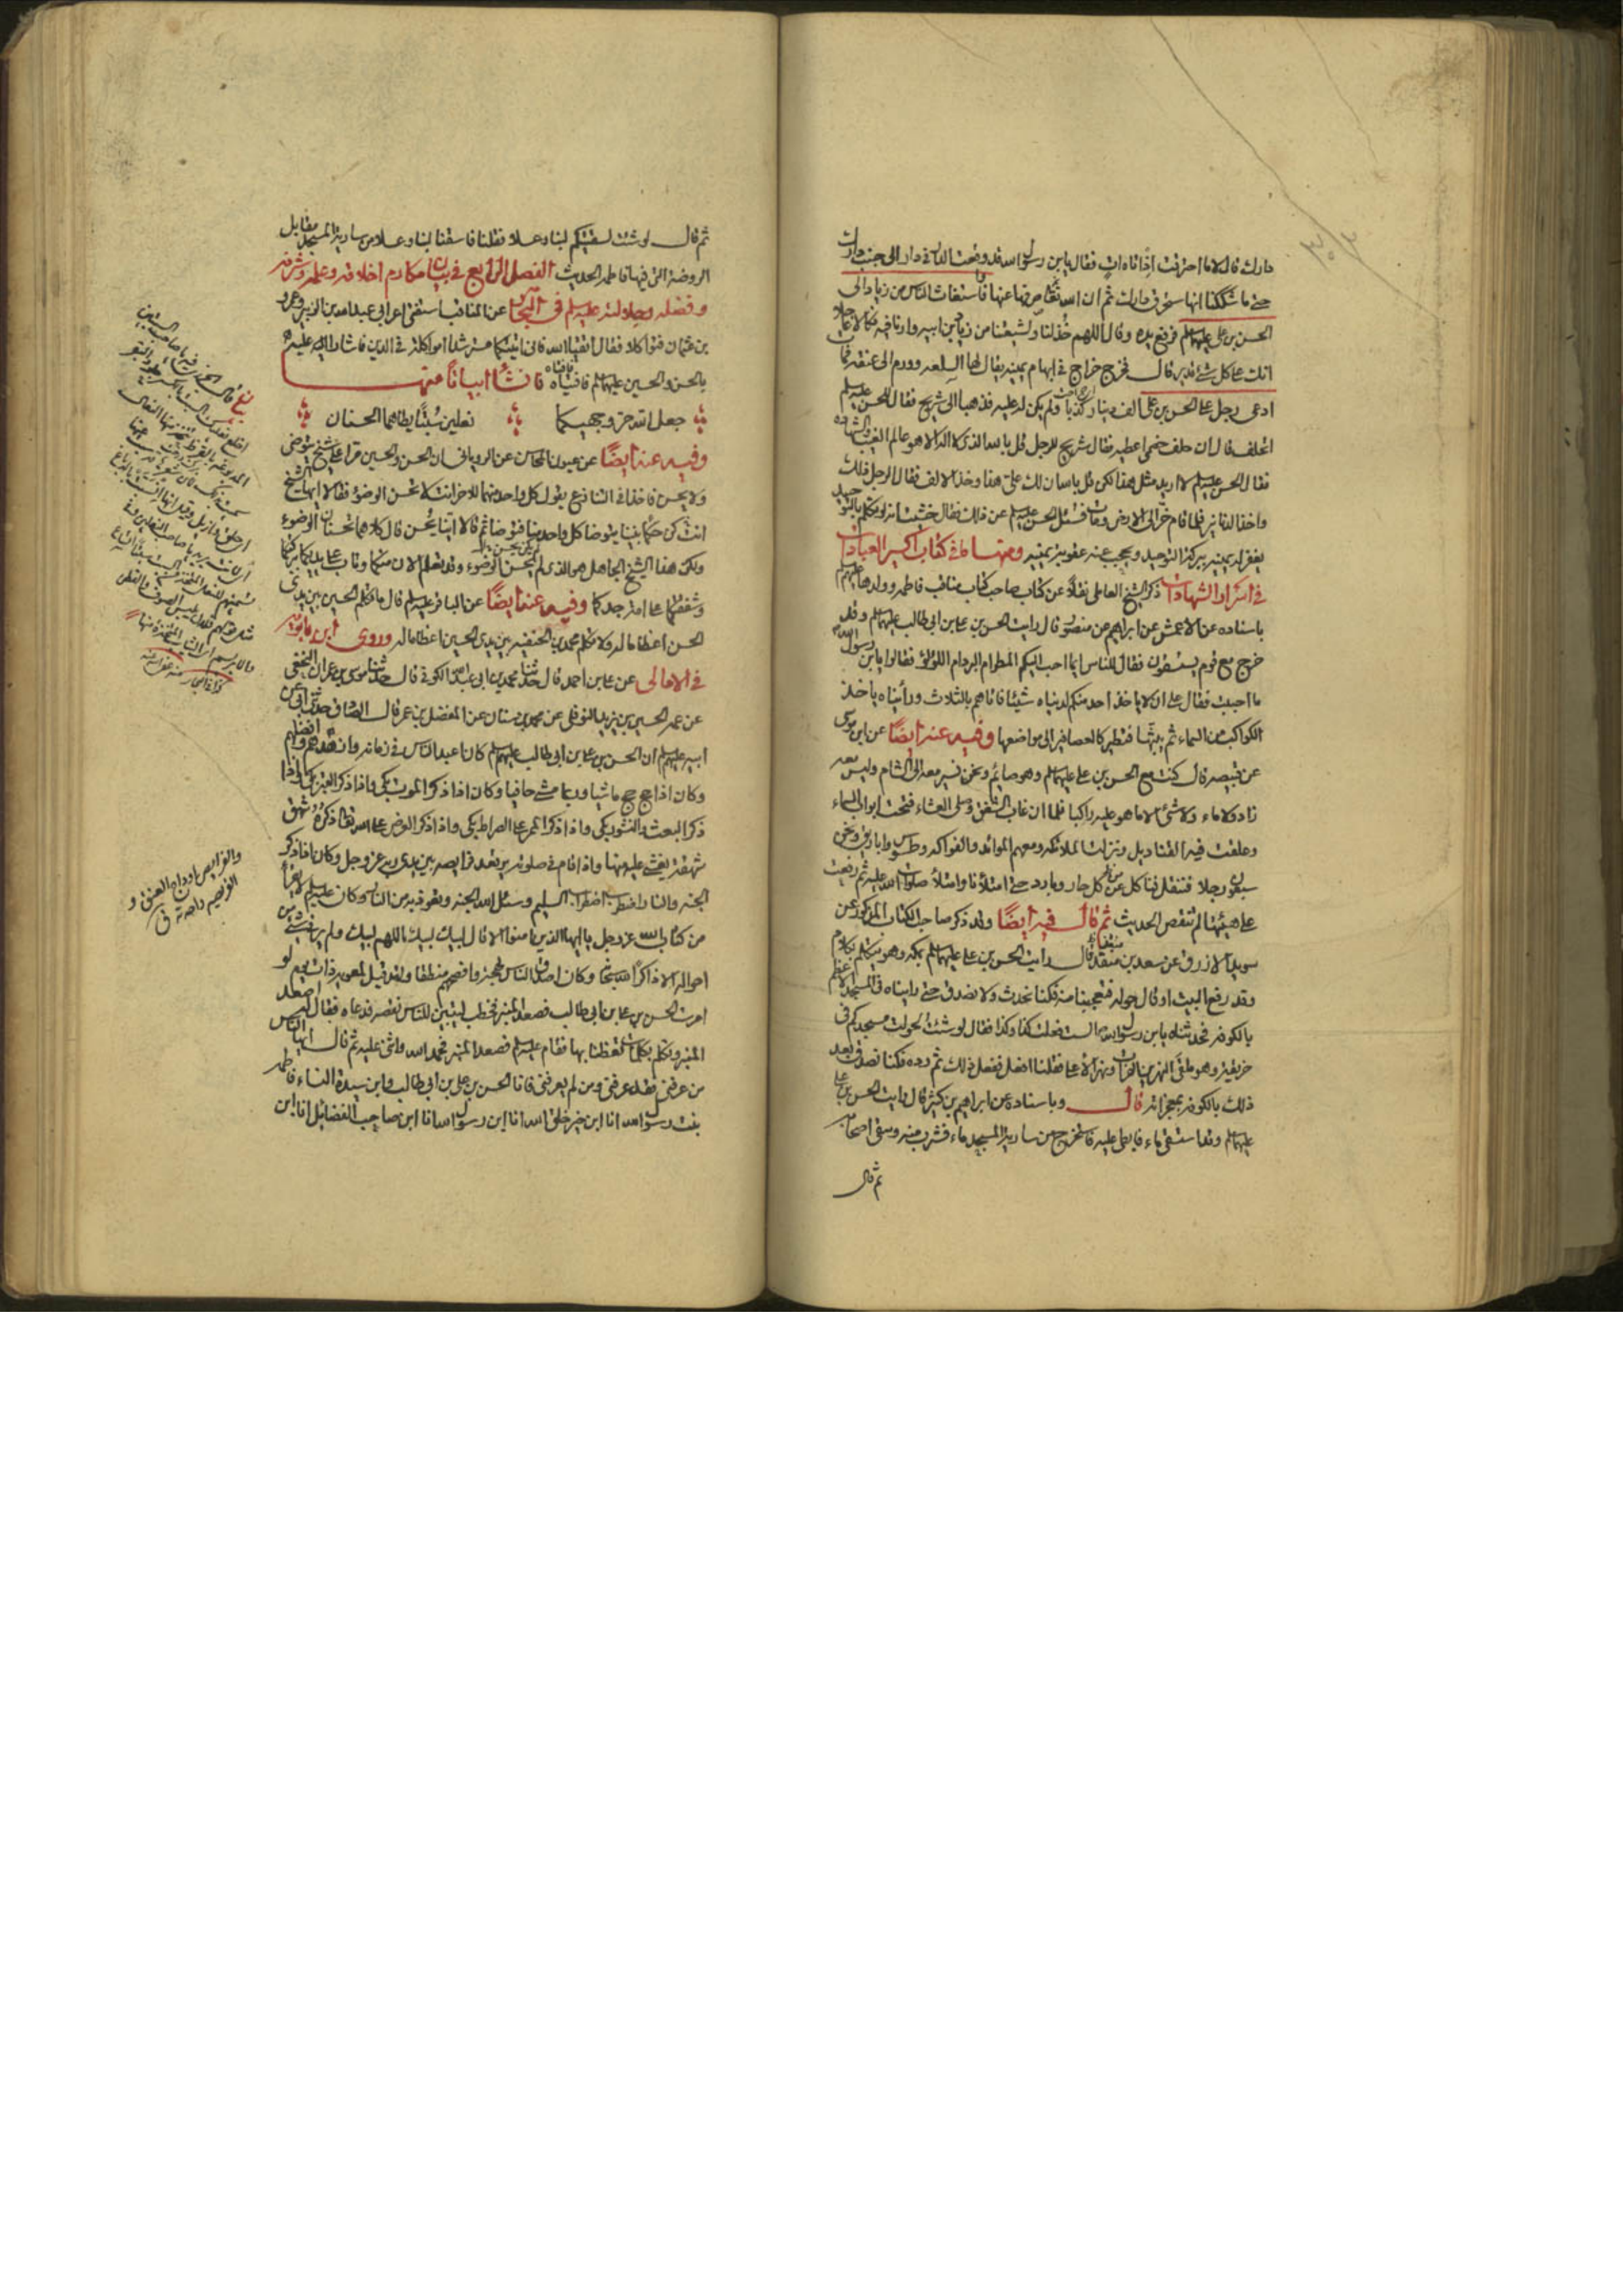 دارك قال لا ما احترقت اذ اتاه ات فقال يابن رسول الله قد وقعت النار في دار الى جنب دارك
حتى ما شككنا انها ستحرق دارك ثم ان الله تعالى صرفها عنها فاستغاث الناس من زياد الى
الحسن بن علي عليهما السلم فرفع يده وقال اللهم خذ لنا ولشيعتنا من زياد بن ابيه وارنا فيه نكالا عاجلا
انك على كل شئ قدير قال فخرج خراج في ابهام يمينه يقال لها السلعه وورم الى عنقه فمات
ادعى رجل على الحسن بن علي الف دينار كذبا ولم يكن له عليه فذهبا الى شريح فقال للحسن عليه السلم
اتحلف قال ان حلف خصمي اعطيه فقال شريح للرجل قل بالله الذي لا اله الا هو عالم الغيب والشهاده
فقال الحسن عليه السلم لا اريد مثل هذا لكن قل بالله ان لك على هذا وخذ الالف فقال الرجل ذلك
واخذ الدنانير فلما قام خر الى الارض ومات فسئل الحسن عليه السلم عن ذلك فقال خشيت انه لو تكلم بالتوحيد
يغفر له يمينه ببركة التوحيد ويحجب عنه عقوبة يمينه ومنها ما في كتاب اكسير العبادات
في اسرار الشهادات ذكر الشيخ العاملي نقلا عن كتاب صاحب كتاب مناقب فاطمه وولدها عليهم السلم
باسناده عن الاعمش عن ابراهيم عن منصور قال رايت الحسن بن علي بن ابي طالب عليهما السلم وقد
خرج مع قوم يستسقون فقال للناس ايما احب اليكم المطر ام البرد ام اللؤلؤ فقالوا يابن رسول الله
ما احببت فقال على ان لا ياخذ احد منكم لدنياه شيئا فاتاهم بالثلاث وراينا ه ياخذ
الكواكب من السماء ثم يبثها فتطير كالعصافير الى مواضعها وفيه عنه ايضا عن ابن موسى
عن قبيصه قال كنت مع الحسن بن علي عليهما السلم وهو صائم ونحن نسير معه الى الشام وليس معه
زاد ولا ماء ولا شئ الا ما هو عليه راكبا فلما ان غاب الشفق وصلى العشاء فتحت ابواب السماء
وعلقت فيه القناديل ونزلت الملائكه ومعهم الموائد والفواكه وطسوس واباريق ونحن
سبعون رجلا فنقل فينا كل من كل حار وبارد حتى امتلأنا وامتلأ صلوات الله عليه ثم رفعت
على هيئتها لم تنقص الحديث ثم قال فيه ايضا وقد ذكر صاحب الكتاب المذكور عن
سويد الازرق عن سعد بن منقذ قال رايت الحسن بن علي عليهما السلم بمكه وهو يتكلم بكلام
وقد رفع البيت او قال حوله فتعجبنا منه فكنا نحدث ولا نصدق حتى رايناه في المسجد الاعظم
بالكوفه فحدثناه يابن رسول الله الست فعلت كذا وكذا فقال لو شئت لحولت مسجدكم في
وهو ملتقى النهرين الفرات ونهر الاعلى فقلنا افعل ففعل ذلك ثم رده فكنا نصدق بعد
ذلك بالكوفه بمعجزاته قال وباسناده عن ابراهيم بن كثير قال رايت الحسن بن علي
عليهما السلم وقد استسقى ماء فابطى عليه فاستخرج من ساريه المسجد ماء فشرب منه وسقى اصحابه
ثم قال
ثم قال لو شئت لسقيتكم لبنا وعسلا فقلنا فاسقنا لبنا وعسلا من ساريه المسجد مقابل
الروضه التي فيها فاطمه الحديث الفصل الرابع في بيان مكارم اخلاقه وعلمه وشرفه
وفضله وجلالته عليه السلم في البحار عن المناقب استفتى اعرابي عبد الله بن الزبير وعمرو
بن عثمان فتواكلا فقال اتقيا الله فاني اتيتكما مسترشدا امواكلة في الدين فاشارا اليه عليه
بالحسن والحسين عليهما السلم فافتياه فانشا ابياتا منها
جعل الله حر وجهيكما نعلين سبتا يطاهما الحسنان
وفيه عنه ايضا عن عيون المحاسن عن الروياني ان الحسن والحسين مرا على شيخ يتوضى
ولا يحسن فاخذا في التنازع يقول كل واحد منهما للاخر انت لا تحسن الوضوء فقالا ايها الشيخ
انت كن حكما بيننا يتوضا كل واحد منا فتوضا ثم قالا اينا يحسن قال كلاكما تحسنان الوضوء
ولكن هذا الشيخ الجاهل هو الذي لم يكن يحسن الوضوء وقد تعلم الان منكما وتاب على يديكما ببركتكما
وشفقتكما على امه جدكما وفيه عنه ايضا عن الباقر عليه السلم قال ما تكلم الحسين بين يدي
الحسن اعظاما له ولا تكلم محمد بن الحنفيه بين يدي الحسين اعظاما له وروى ابن بابويه
في الامالي عن علي بن احمد قال حدثنا محمد بن ابي عبد الله الكوفي قال حدثنا موسى بن عمران النخعي
عن عمه الحسين بن يزيد النوفلي عن محمد بن سنان عن المفضل بن عمر قال الصادق حدثني ابي عن
ابيه عليهم السلم ان الحسن بن علي بن ابي طالب عليهم السلم كان اعبد الناس في زمانه وازهدهم وافضلهم
وكان اذا حج حج ماشيا وربما مشى حافيا وكان اذا ذكر الموت بكى واذا ذكر القبر بكى واذا
ذكر البعث والنشور بكى واذا ذكر الممر على الصراط بكى واذا ذكر العرض على الله تعالى ذكره شهق
شهقة يغشى عليه منها واذا قام في صلوته ترتعد فرايصه بين يدي ربه عز وجل وكان اذا ذكر
الجنه والنار اضطرب اضطراب السليم وسئل الله الجنه وتعوذ به من النار وكان عليه السلم لا يقرأ
من كتاب الله عز وجل يا ايها الذين امنوا الا قال لبيك لبيك اللهم لبيك ولم ير في شئ من
احواله الا ذاكرا لله سبحانه وكان اصدق الناس لهجة وافصحهم منطقا ولقد قيل لمعويه ذات يوم لو
امرت الحسن بن علي بن ابي طالب فصعد المنبر فخطب ليتبين للناس نقصه فدعاه فقال له اصعد
المنبر وتكلم بكلمات تعظنا بها فقام عليه السلم فصعد المنبر فحمد الله واثنى عليه ثم قال ايها الناس
من عرفني فقد عرفني ومن لم يعرفني فانا الحسن بن علي بن ابي طالب وابن سيدة النساء فاطمه
بنت رسول الله انا ابن خير خلق الله انا ابن رسول الله انا ابن صاحب الفضائل انا ابن